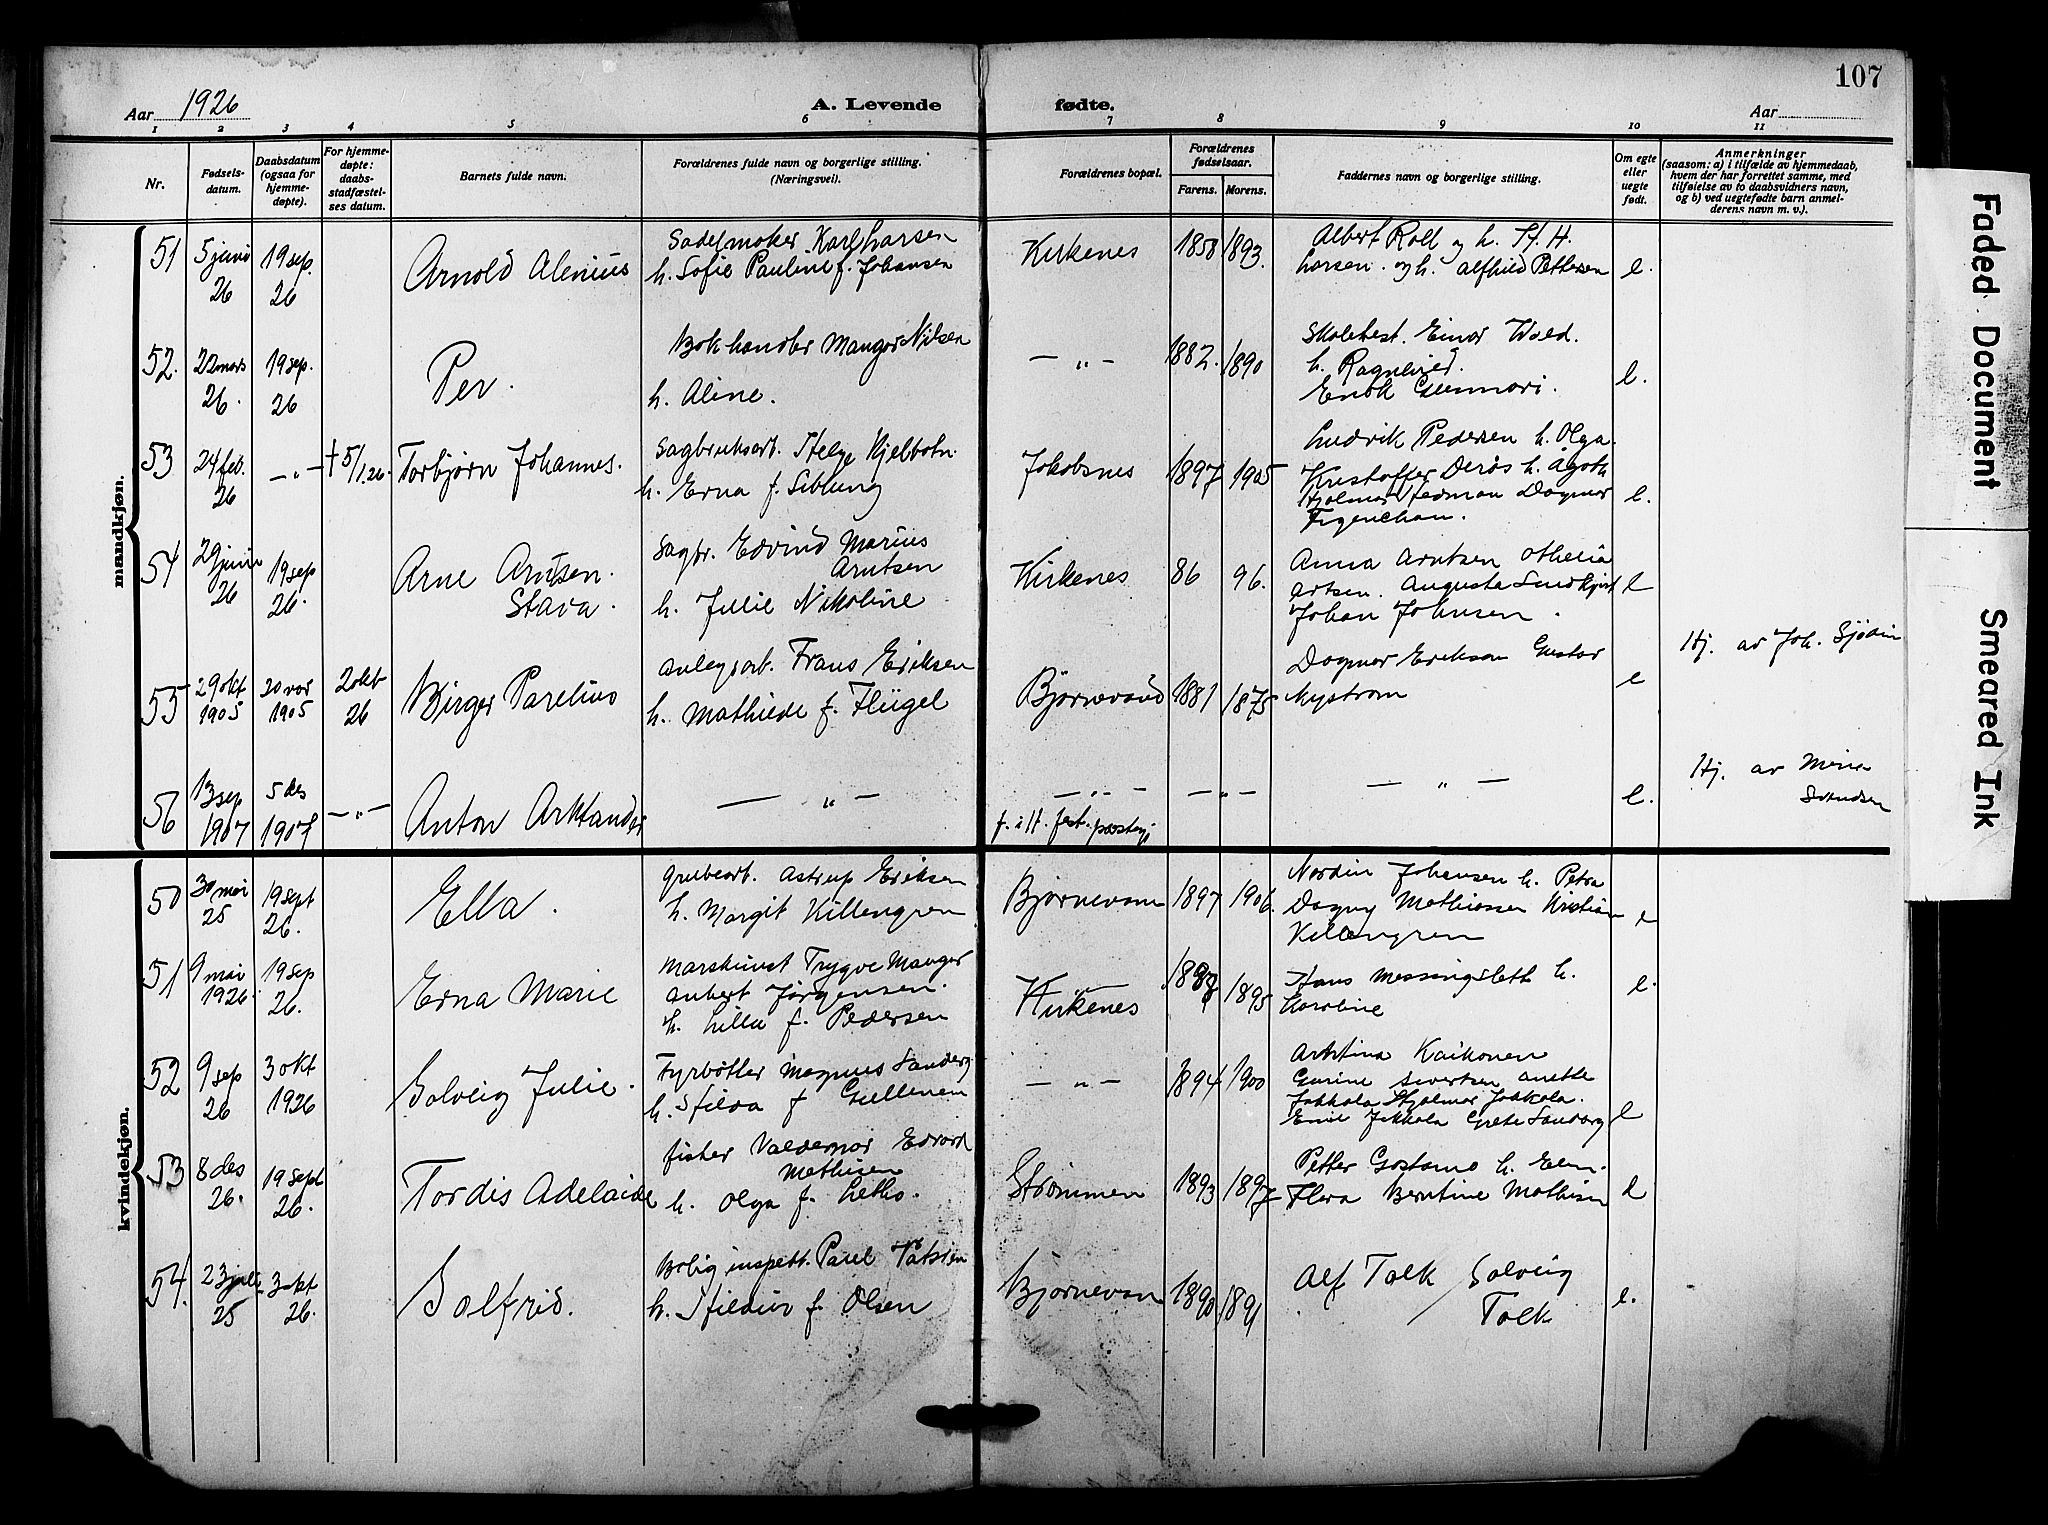 107
Aar 1926
A. Levende fødte.
Aar
1 2 3 4 5 6 7 8 9 10 11
Nr.
Fødsels-
datum.
Daabsdatum
(ogsaa for
hjemme-
døpte).
For hjemme-
døpte:
daabs-
stadfæstel-
ses datum.
Barnets fulde navn.
Forældrenes fulde navn og borgerlige stilling.
(Næringsvei).
Forældrenes bopæl.
Forældrenes
fødselsaar.
Farens. Morens.
Faddernes navn og borgerlige stilling.
Om egte
eller
uegte
født.
Anmerkninger
(saasom: a) i tilfælde av hjemmedaab,
hvem der har forrettet samme, med
tilføielse av to daabsvidners navn,
og b) ved uegtefødte barn anmel-
derens navn m. v.).
mandkjøn.
51
5 juni
26
19 sep.
26
Arnold Alenius
Sadelmaker Karl Larsen
h. Sofie Pauline f. Johansen
Kirkenes
1858
1893.
Albert Roll og h. H.
Larsen. og h. Alfhild Pettersen
e.
52.
22 mars
26.
19 sep.
26
Per.
Bokhandler Mangor Nilsen
h. Aline.
— „ —
1882.
1890
Einar Wold.
h. Ragnhild.
Enok
e.
53
24 feb.
26
— „ —
† 5/1.26.
Torbjørn Johannes.
Sagbruksarb. Helge Kjelbotn
h. Erna f.
Jakobsnes
1897
1905
Ludvik Pedersen h. Olga.
Kristoffer h. Ågot
Hjalmar Dagmar
e.
54
29 juni
26
19 sep
26.
Arne Arntsen.
Stava.
Sagbr. Edvind Marius
Arntsen
h. Julie Nikoline
Kirkenes
86
96.
Anna Arntsen
Augusta
Johan Johnsen.
e
55
29 okt
1905
30 nov
1905
2 okt
26
Birger Parelius
anlegsarb. Frans Eriksen
h. Mathilde f. Flügel
Bjørnevand
1881
1875
Dagmar Erikson Gustav
Nystrom
e
Hj. av Joh. Sjödin
56
13 sep
1907
5 des
1907
— „ —
Anton Arktander
— „ —
— „ —
— „ —
— „ —
e.
Hj. av
Svendsen
kvindekjøn.
50
30 mai
25
19 sept
26.
Ella.
Grubearb. Astrup Eriksen
h. Margit Killengren
Bjørnevann
1897
1906.
Nordin Johansen h. Petra
Dagny Mathiassen Kristian
Killengren
e
51
9 mai
1926.
19 sep
26.
Erna Marie
Trygve Mangor
Jørgensen.
h. Lilla f. Pedersen
Kirkenes
1895
Hans Messingslett h.
Karoline
e.
52
9 sep
26
3 okt
1926
Solveig Julie.
Fyrbøtter Magnus Sandberg
h. Hilda f.
— „ —
1894
1900
Kaikonen
Gurine Sivertsen Anette
Jakkola Hjalmar Jakkola.
Emil Jakkola Grete Sandberg
e
53
8 des
26.
19 sept
26.
Tordis Adelaide
fisker Valdemar Edvard
Mathisen
h. Olga f.
Strømmen
1893
1897
Petter h.
Flora Berntine Mathisen
e
54.
23 juli
25
3 okt
26.
Solfrid.
Bolig inspekt. Paul
h. Hildur f. Olsen
Bjørnevann
1890
1891
Alf Tolk / Solveig
Tolk
e.
Faded Document
Smeared Ink